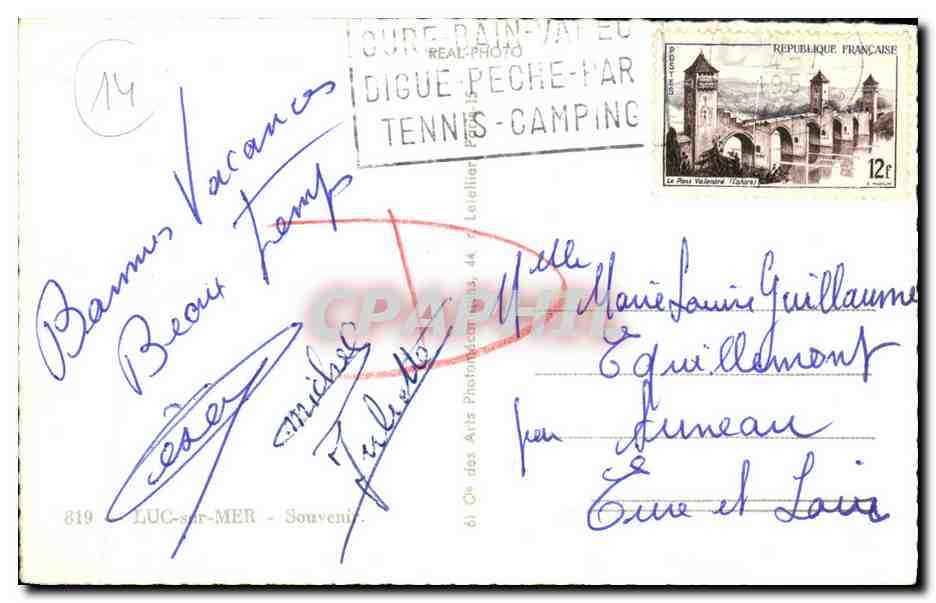 14
REAL-PHOTO
DIGUE-PECHE-PAR
TENNIS-CAMPING
POSTES
REPUBLIQUE FRANÇAISE
195
Le Pont Valentré (Cahors)
12f
Bonnes Vacances
Beaux Temps
michel
Juliette
Melle Marie Louise Guillaume
Equillemont
par Auneau
Eure et Loir
Cie des Arts Photomécaniques, 44, r. Letellier
CPAPHIL
819 - LUC-sur-MER - Souvenir.